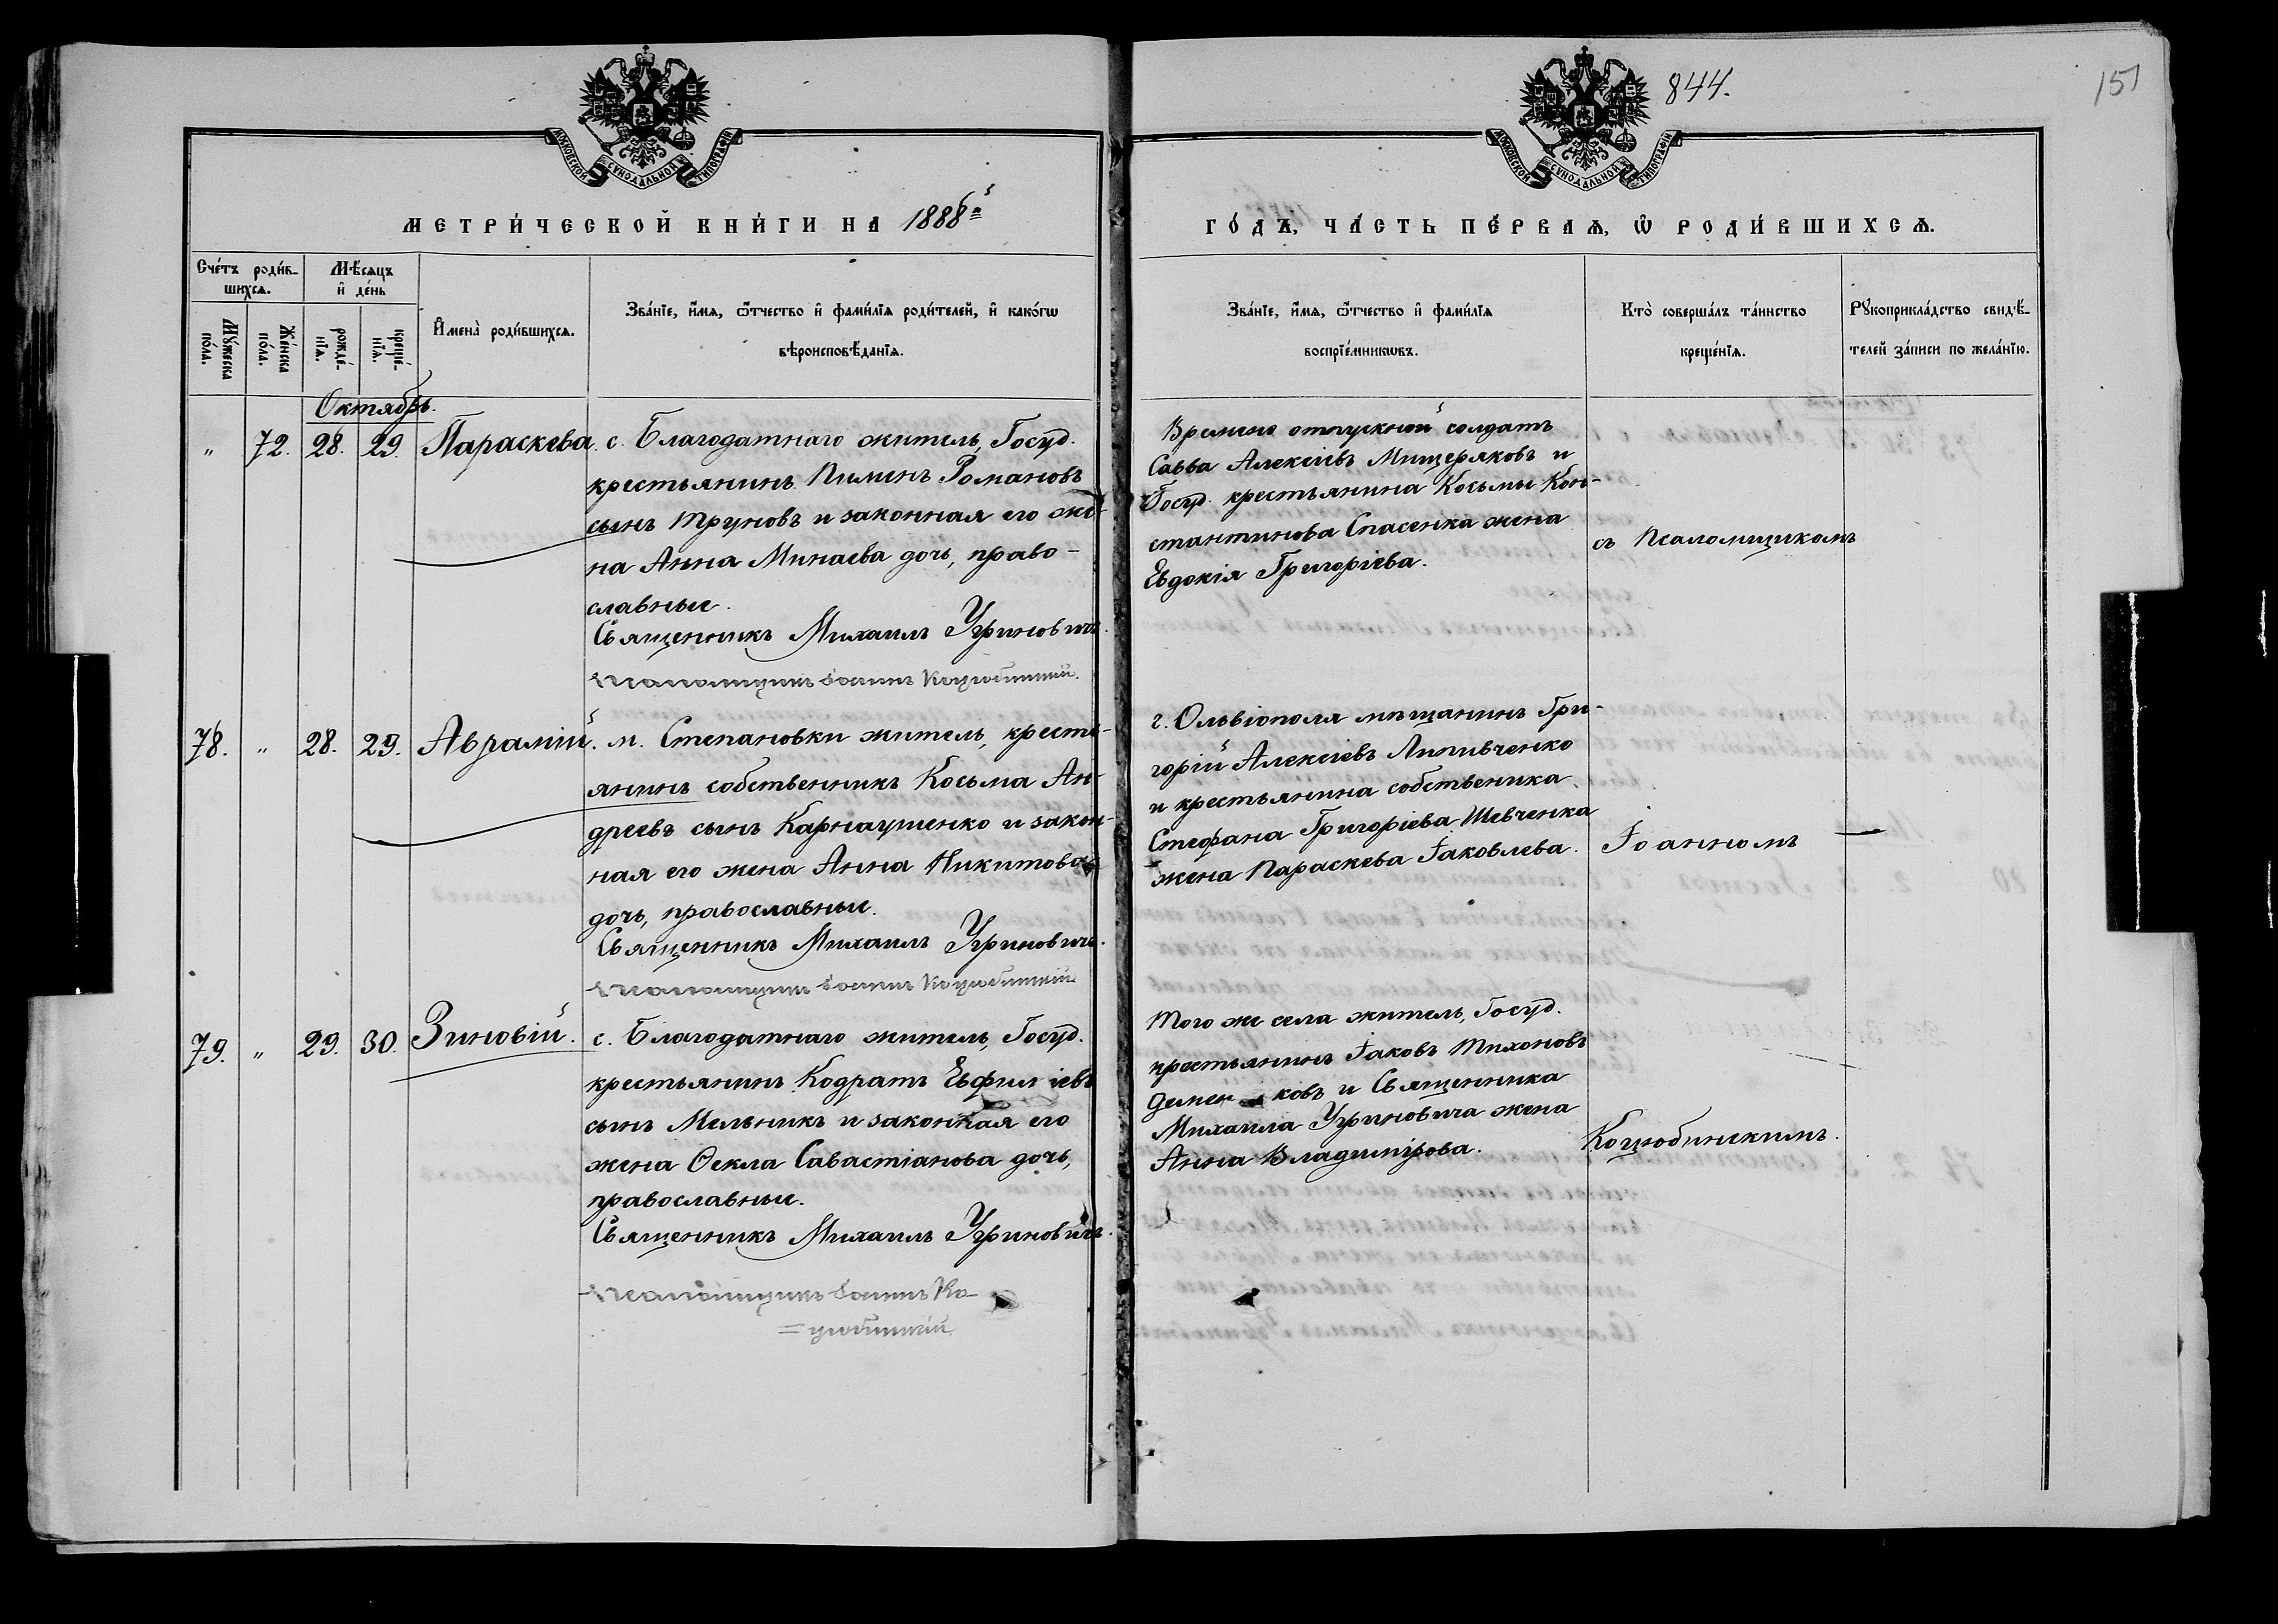 844.
151
МОСКОВСКОЙ СѴНОДАЛЬНОЙ ТИПОГРАФІИ
МОСКОВСКОЙ СѴНОДАЛЬНОЙ ТИПОГРАФІИ
МЕТРИ́ЧЕСКОЙ КНИ́ГИ НА 1888й
ГО́ДЪ, ЧА́СТЬ ПЕ́РВАѦ, Ѡ҆ РОДИ́ВШИХСѦ.
Сче́тъ роди́в-
шихсѧ.
Мѣ́сѧцъ
и҆ де́нь
Мꙋ́жеска
по́ла.
Же́нска
по́ла.
рожде́-
нїѧ.
креще́-
нїѧ.
И҆мена̀ роди́вшихсѧ.
Зва́нїе, и҆́мѧ, ѻ҆́тчество и҆ фами́лїѧ роди́телей, и҆ како́гѡ
вѣроисповѣ́данїѧ.
Зва́нїе, и҆́мѧ, ѻ҆́тчество и҆ фами́лїѧ
воспрїе́мникѡвъ.
Кто̀ соверша́лъ та́инство
креще́нїѧ.
Рꙋкоприкла́дство свидѣ́-
телей за́писи по жела́нїю.
Октябрь.
" 72. 28. 29. Параскева. с. Благодатнаго житель, Госуд.
крестьянинъ Пименъ Романовъ
сынъ Труновъ и законная его же-
на Анна Минаева дочь, право-
славные.
Священникъ Михаилъ Угриновичъ.
Псаломщикъ Іоаннъ Коцюбинскій.
Времено отпускной солдатъ
Савва Алексіевъ Мищеряковъ и
Госуд. крестьянина Косьмы Кон-
стантинова Спасенка жена
Евдокія Григоріева.
съ Псаломщикомъ
78. " 28. 29. Аврамій. м. Степановки житель, кресть-
янинъ собственникъ Косьма Ан-
дреевъ сынъ Карнаушенко и закон-
ная его жена Анна Никитова
дочь, православные.
Священникъ Михаилъ Угриновичъ.
Псаломщикъ Іоаннъ Коцюбинскій.
г. Ольвіополя мѣщанинъ Гри-
горій Алексіевъ Липивченко
и крестьянина собственика
Стефана Григоріева Шевченка
жена Параскева Іаковлева.
Іоанномъ
79. " 29. 30. Зиновій. с. Благодатнаго житель, Госуд.
крестьянинъ Кодратъ
сынъ Мельникъ и законная его
жена Ѳекла Савастіанова дочь,
православные.
Священникъ Михаилъ Угриновичъ.
Псаломщикъ Іоаннъ Ко-
=цюбинскій.
Того же села житель, Госуд.
крестьянинъ Іаковъ Тихоновъ
и Священника
Михаила Угриновича жена
Анна Владимірова.
Коцюбинскимъ.